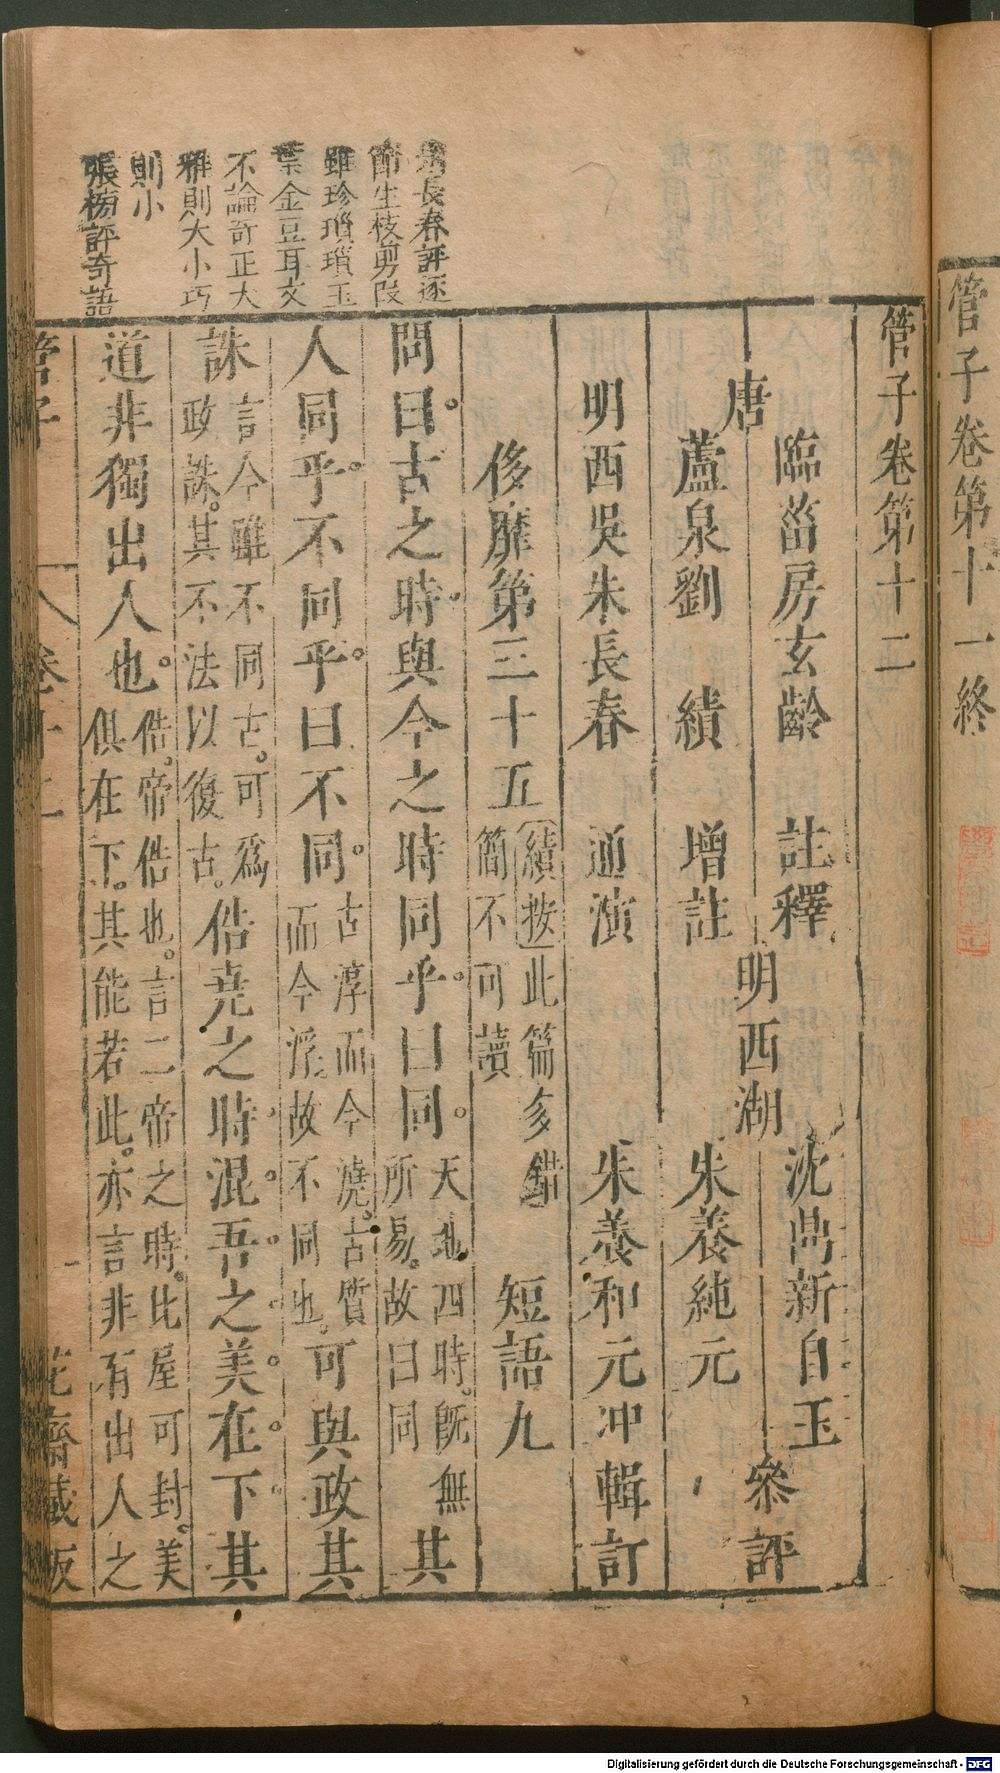 管子卷第十一終
管子卷第十二
唐
臨菑房玄齡　註釋
蘆泉劉　績　增註
明西吳朱長春　通演
明西湖
沈鼎新自玉
朱養純元
參評
朱養和元冲輯訂
侈靡第三十五
績按此篇多錯
簡不可讀
短語九
問曰。古之時。與今之時同乎。曰同。
天地四時。旣無
所易。故曰同
其
人同乎。不同乎。曰不同。
古淳而今澆。古質
而今浮。故不同也。
可與政其
誅
言今雖不同古。可爲
政誅。其不法以復古。
俈堯之時。混吾之美。在下。其
道非獨出人也。
俈。帝俈也。言二帝之時。比屋可封。美
俱在下。其能若此。亦言非有出人之
朱長春評逐
節生枝剪段
雖珍瑣瑣玉
葉金豆耳文
不論奇正大
雅則大小巧
則小
張榜評奇語
管子
卷十二
一
花齋藏板
Digitalisierung gefördert durch die Deutsche Forschungsgemeinschaft - DFG